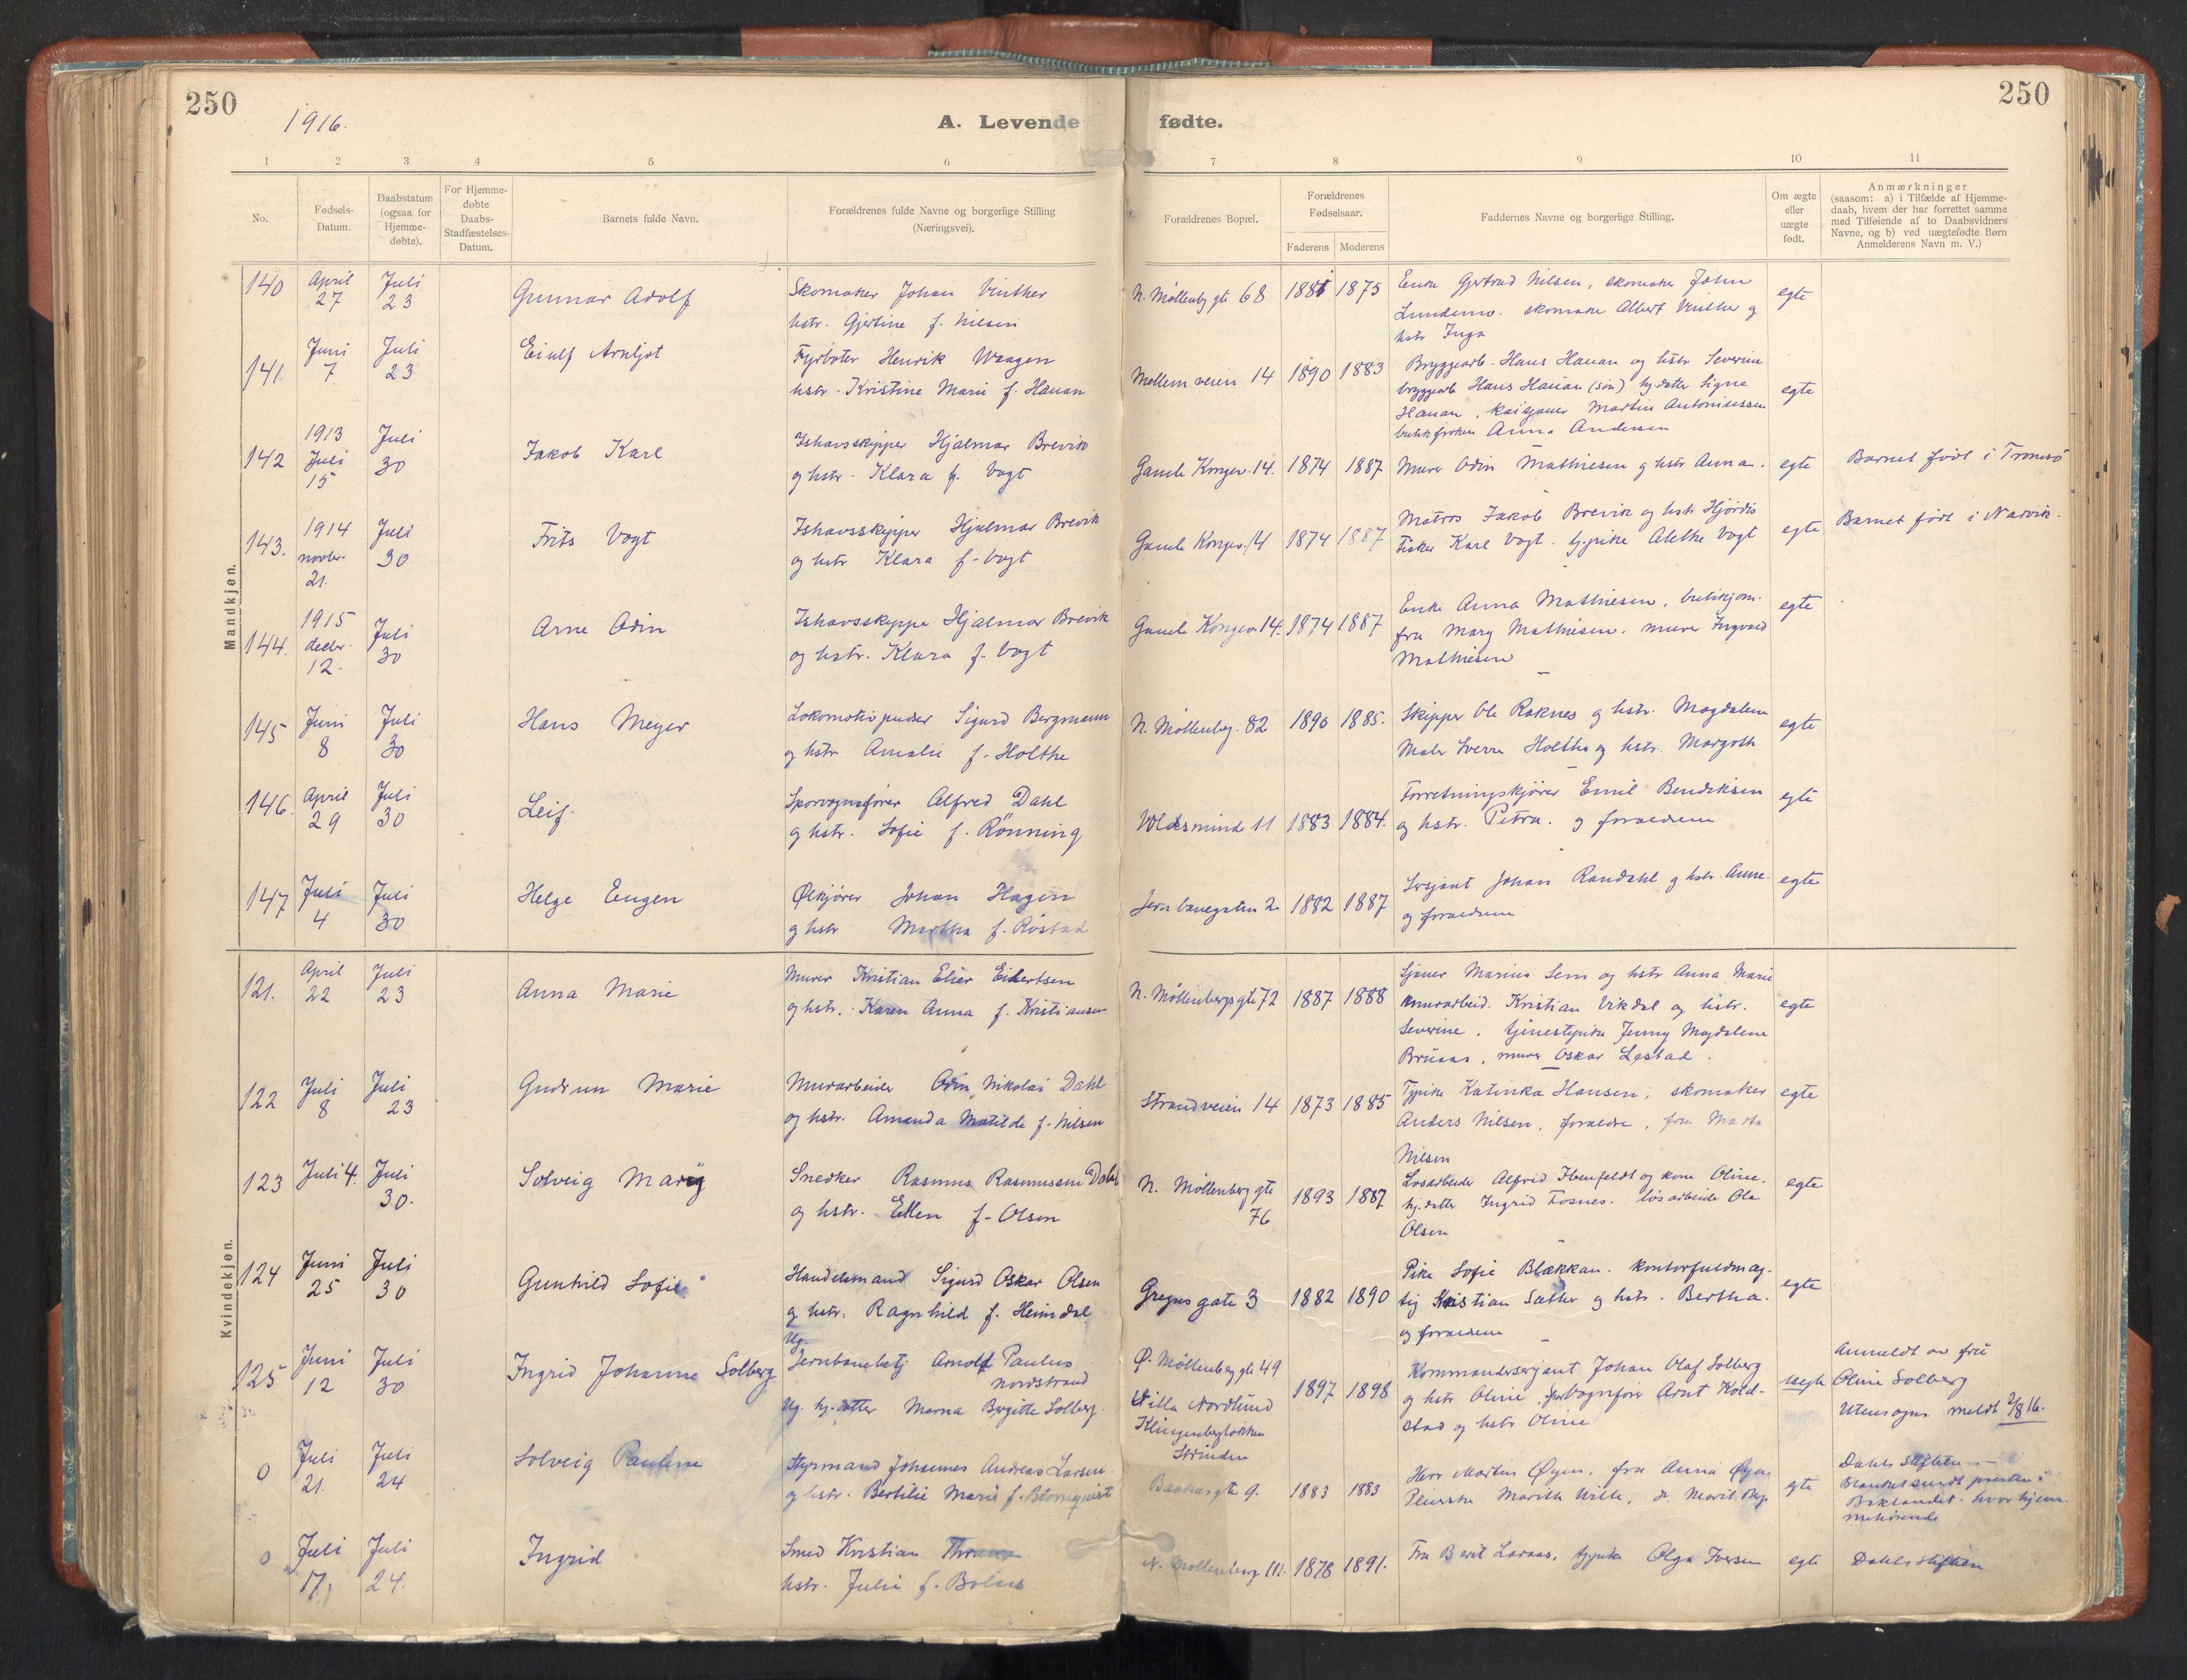 250
1916.
A. Levende fødte.
250
1 2 3 4 5 6 7 8 9 10 11
No.
Fødsels-
Datum.
Daabstatum
(ogsaa for
Hjemme-
døbte).
For Hjemme-
døbte
Daabs-
Stadfæstelses-
Datum.
Barnets fulde Navn.
Forældrenes fulde Navne og borgerlige Stilling
(Næringsvei).
Forældrenes Bopæl.
Forældrenes
Fødselsaar.
Faderens Moderens
Faddernes Navne og borgerlige Stilling.
Om ægte
eller
uægte
født.
Anmærkninger
(saasom: a) i Tilfælde af Hjemme-
daab, hvem der har forrettet samme
med Tilføiende af to Daabsvidners
Navne, og b) ved uægtefødte Børn
Anmelderens Navn m. V.)
Mandkjøn.
140 April 27 Juli 23 Gunnar Adolf
Skomaker Johan Vinther
hstr. Gjertine f. Nilsen
N. Møllenbg gte 68 1875
Enke Gjertrud Nilsen, skomaker John
Lundemo. skomaker Albert Vinther og
hstr Inga
egte
141. Juni 7 Juli 23 Eiulf Arnljot
Fyrbøter Henrik Waagen
hstr. Kristine Marie f. Hauan
Mellemveien 14 1890 1883
Bryggearb. Hans Hauan og hstr Severine
bryggearb Hans Hauan (søn) hj.datter Signe
Hauan, Martin Antoniussen
butikfrøken Anna Andersen
egte
142 1913 Juli 15 Juli 30 Jakob Karl
Ishavsskipper Hjalmar Brevik
og hstr. Klara f. Vogt
Gamle Kongev. 14. 1874 1887
Murer Odin Mathiesen og hstr Anna.
egte
Barnet født i Tromsø
143. 1914 novbr. 21. Juli 30 Frits Vogt
Ishavsskipper Hjalmar Brevik
og hstr Klara f. Vogt
Gamle Kongev. 14 1874 1887
Matros Jakob Brevik og hstr Hjørdis
Fisker Karl Vogt. tj.pike Alethe Vogt
egte
Barnet født i Narvik.
144. 1915 decbr. 12. Juli 30 Arne Odin
Ishavsskipper Hjalmar Brevik
og hstr. Klara f. Vogt
Gamle Kongev 14. 1874 1887
Enke Anna Mathiesen, butikjom-
fru Mary Mathiesen. murer Ingvald
Mathiesen
egte
145 Juni 8 Juli 30 Hans Meyer
Lokomotivpudser Sigurd Bergmann
og hstr Amalie f. Holthe
N. Møllenbg. 82 1890 1885.
Skipper Ole Raknes og hstr. Magdalene
Maler Sverre Holthe og hstr. Margoth
egte
146. April 29 Juli 30 Leif.
Sporvognsfører Alfred Dahl
og hstr. Sofie f. Rønning
Voldsminde 11 1883 1884.
Forretningskjører Emil Bendiksen
og hstr. Petra. og forældrene
egte
147 Juli 4 Juli 30 Helge Eugen
Ølkjører Johan Hagen
og hstr Martha f. Røstad
Jernbanegaten 2 1882 1887
Sersjant Johan Randahl og hstr. Anne.
og forældrene
egte
Kvindekjøn.
121. April 22 Juli 23 Anna Marie
Murer Kristian Elier Eilertsen
og hstr. Karen Anna f. Kristiansen
N. Møllenbergs gte 72 1887 1888
Sjauer Marius Sem og hstr Anna Marie
murarbeid. Kristian Vikdal og hstr.
Severine. tjenestepike Jenny Magdalene
Bruaas, murer Oskar Lestad.
egte
122 Juli 8 Juli 23 Gudrun Marie
Murarbeider Odin Nikolai Dahl
og hstr. Amanda Matilde f. Nilsen
Strandveien 14 1873 1885
Tjpike Katinka Hansen, skomaker
Anders Nilsen, forældre, fru Marta
Nilsen
egte
123 Juli 4. Juli 30. Solveig
Snedker Rasmus Rasmussen Dahl
og hstr. Ellen f. Olsen
N. Møllenberg gte
76
1893 1887
Løsarbeider Alfred Ibenfeldt og kone Oline,
hj.datter Ingrid Fosnes. løsarbeider Ole
Olsen
egte
124 Juni 25 Juli 30 Gunhild Sofie
Handelsmand Sigurd Oskar Olsen
og hstr. Ragnhild f. Heimdal
Gregus gate 3 1882 1890
Pike Sofie Blækkan. kontorfuldmæg-
tig Kristian Sæther og hstr. Bertha.
og forældrene
egte
125 Juni 12 Juli 30 Ingrid Johanne Solberg
Ug.
Jernbanebetj Arnolf Paulus
Nordstrand
Ug. hj.datter Marna Bergitte Solberg.
Ø. Møllenberg gte 49
Villa Nordlund
Klingenbergløkken
Strinden
1897 1898
Kommandersersjant Johan Olaf Solberg
og hstr Oline, sporvognfører Arnt Kold-
stad og hstr Oline
uegte
Anmeldt av fru
Oline Solberg
Utensogns meldt 2/8 16.
0 Juli 21. Juli 24 Solveig Pauline
Styrmand Johannes Andreas Larsen
og hstr. Bertilie Marie f. Blomquist
Baahus gte 9. 1883 1883
Herr Martin Øyen, fru Anna Øyen
Pleierske Marith Wille,
egte
Dahls Stiftelse
Blanket sendt presten i
Baklandet. hvor hjem-
mehørende
0 Juli 17. Juli 24. Ingrid
Smed Kristian
hstr. Julie f. Bolme
N. Møllenberg 1878 1891.
Fru Berit Laraas, tjpike Olga Iversen
egte
Dahls stiftelse